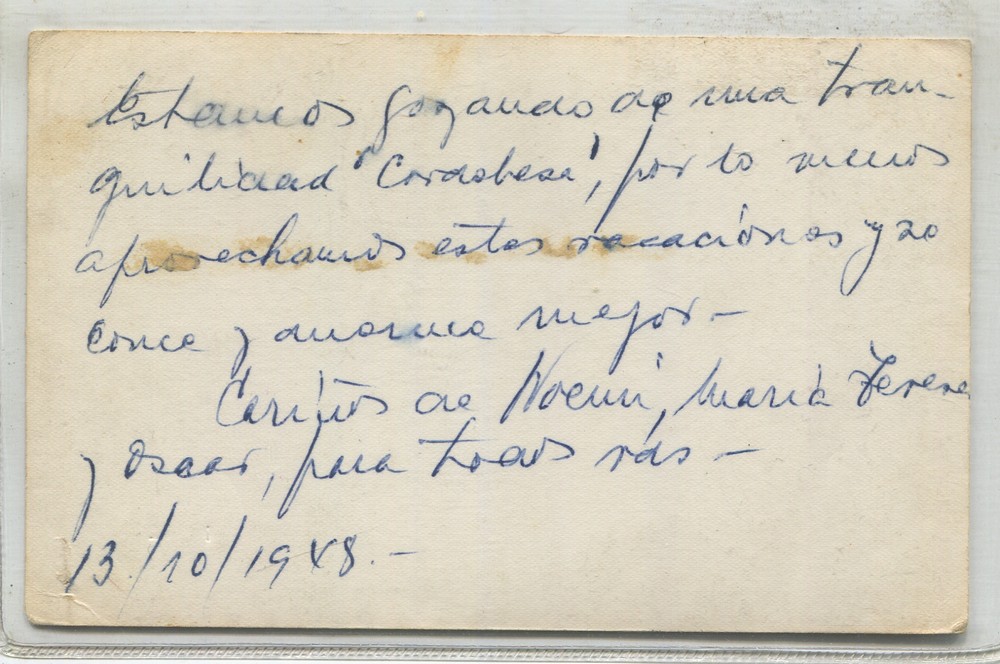 Estamos gozando de una tran-
quilidad "Cordobesa", por lo menos
aprovechamos estas vacaciones y se
come y duerme mejor-
Cariños de Noemí, María Teresa
y Oscar, para todos Vds-
13/10/1948.-